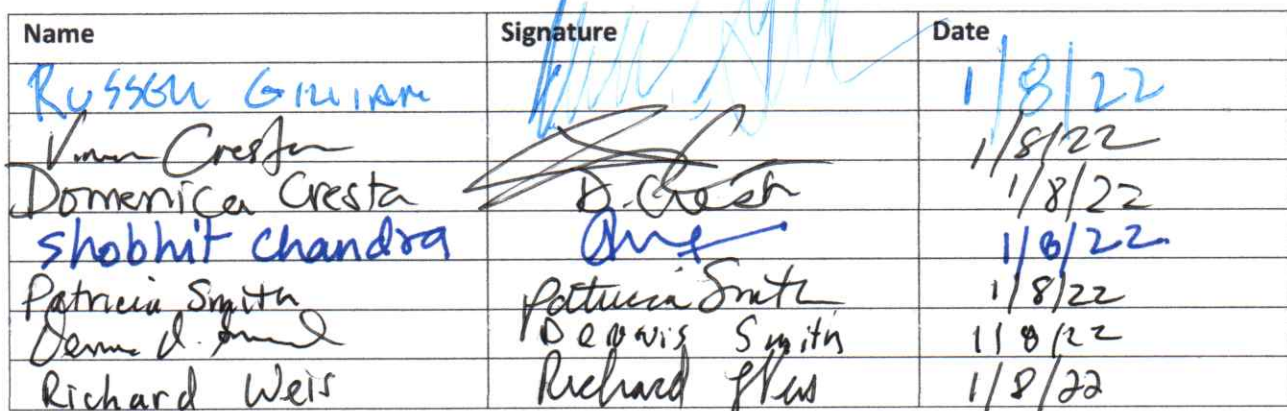 Name Signature Date
Russell Gilliam 1/8/22
Cresta 1/8/22
Domenica Cresta D. Cresta 1/8/22
Shobhit Chandra 1/8/22
Patricia Smith Patricia Smith 1/8/22
Dennis Smith 1/8/22
Richard Weis Richard Weis 1/8/22